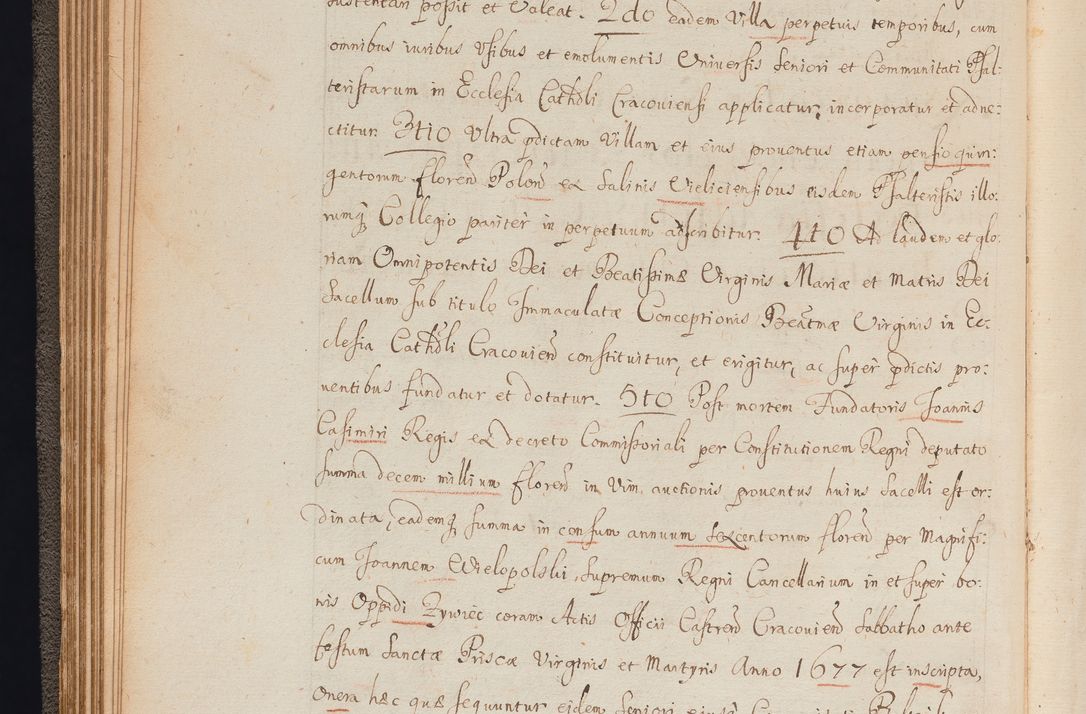 sustentari possit et valeat. 2do eadem Villa perpetuis temporibus, cum
omnibus iuribus Usibus et emolumentis Universis Seniori et Communitati Psal:
teristarum in Ecclesia Cathdli Cracoviensi applicatur, incorporatur et adne:
ctitur. 3tio Ultra pdictam Villam et eius proventus etiam pensio quin:
gentorum floren Polon ex Salinis Vieliciensibus eisdem Psalteristis illo:
rumq Collegio pariter in perpetuum adscribitur. 4to Ad laudem et glo:
riam Omnipotentis Dei et Beatissimæ Virginis Mariæ et Matris Dei
Sacellum sub titulo Immaculatæ Conceptionis Beatmæ Virginis in Ec:
clesia Cathdli Cracovien constituitur, et erigitur, ac super pdictis pro:
ventibus fundatur et dotatur. 5to Post mortem Fundatoris Joannis
Casimiri Regis ex decreto Commissoriali per Constitutionem Regni deputato
summa decem millium floren in Vim auctionis proventus huius Sacelli est or:
dinata, eademq summa in censum annuum sexcentorum floren per Magnifi:
cum Joannem Wielopolski, Supremum Regni Cancellarium in et super bo:
nis Oppidi Zywiec coram Actis Officii Castren Cracovien Sabbatho ante
festum Sanctæ Priscæ Virginis et Martyris Anno 1677 est inscripta,
Onera hæc quæ sequuntur eidem Seniori eiusq Communitati